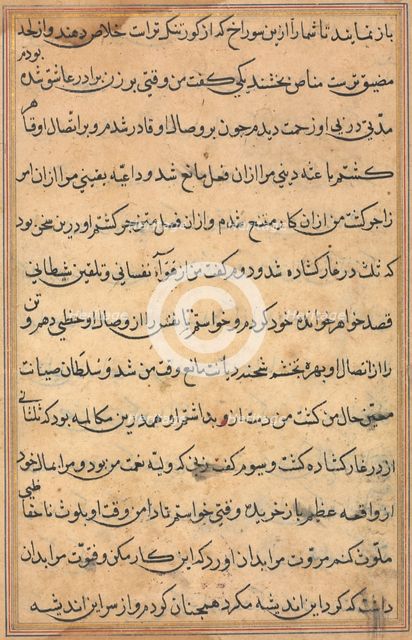 باز نمایند تا شما را ازین سوراخ که از کور تنک تر است خلاص دهند و از لحد
بودم
مضیق ترست مناص بخشند یکی کفت من وقتی بر زن برادر عاشق شده
مدتی در پی او زحمت دیدم چون بر وصال او قادر شدم و بر اتصال او قاهر
کشتم باعثه دینی مرا ازان فعل مانع شد و داعیه یقینی مرا ازان امر
زاجر کشت من ازان کار ممتنع شدم و ازان فعل منزجر کشتم او درین سخن بود
که ثلث در غار کشاده شد دوم کفت من از نفسانی و تلقین شیطانی
قصد خواهر خوانده خود کردم و خواستم تا نفس را از وصال او حظی دهم و تن
را از اتصال او بهره بخشم شحنه دیانت مانع وقت من شد و سلطان صیانت
معین حال من کشت من دست ازو بداشتم او هم درین مکالمه بود که ثلثانی
از در غار کشاده کشت و سیوم کفت زنی که ولیه نعمت من بود و مرا بمال خود
از واقعه عظیم باز خریده وقتی خواستم تا دامن وقت او بلوث ناحفاظی
ملوث کنم مروت مرا بدان آورد که این کار مکن و فتوت مرا بدان
داشت که کرد این اندیشه مکرد همچنان کردم و از سر این اندیشه